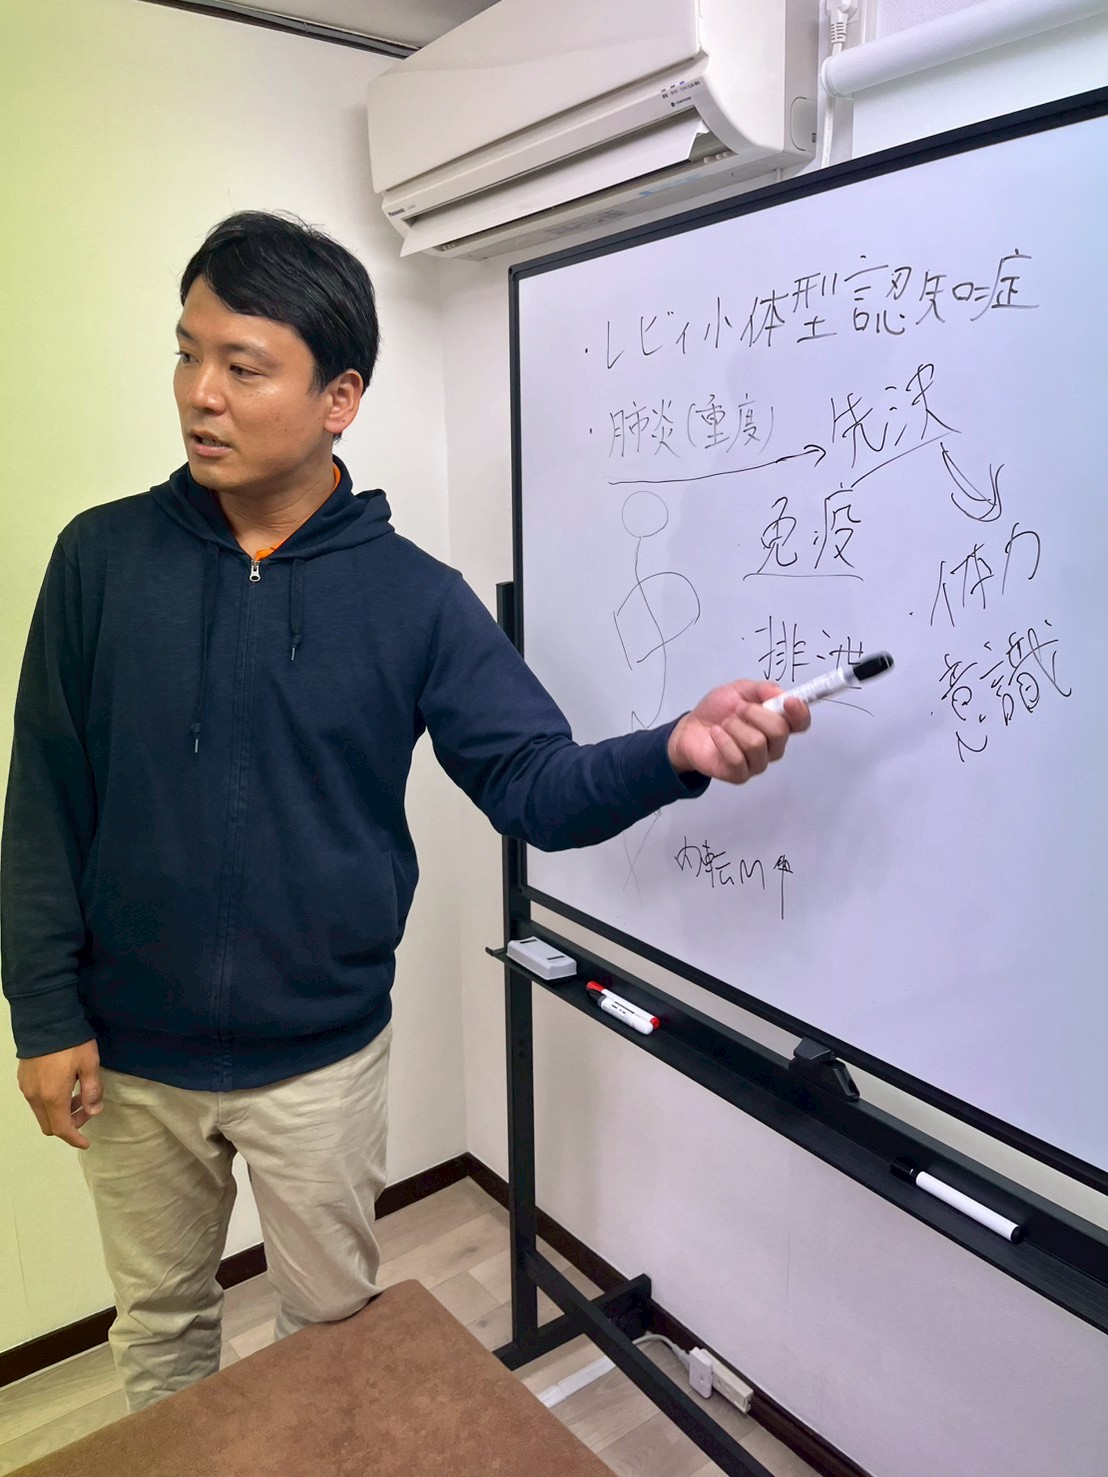 ・レビィ小体型認知症
・肺炎(重度) → 先決
免疫
・体力
・排泄
・意識
内転M
Panasonic